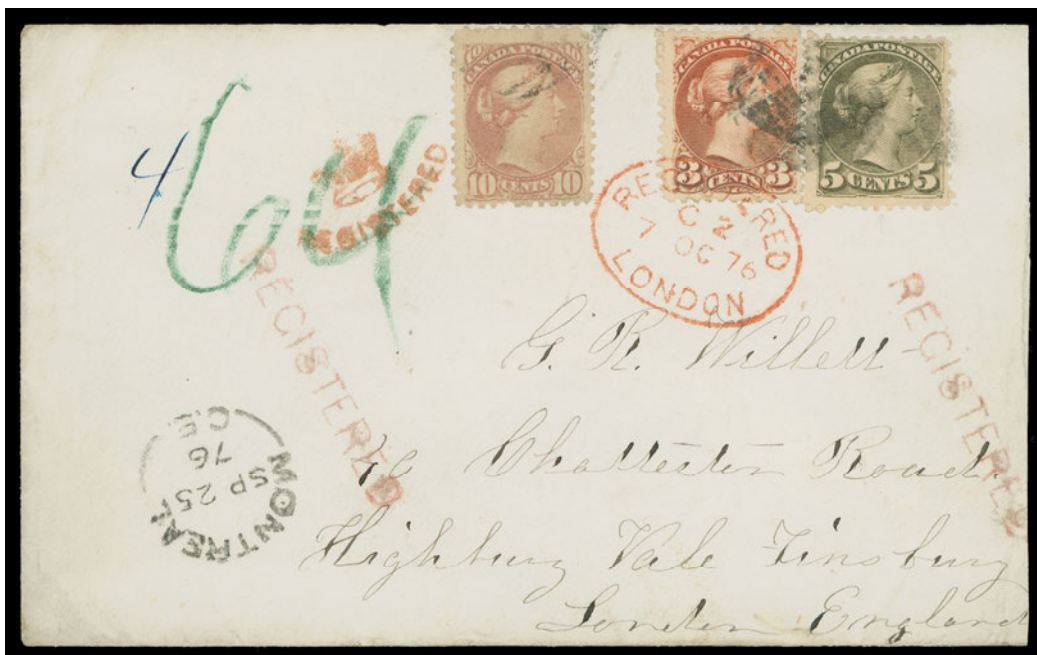 4
64
REGISTERED
CANADA POSTAGE
10 CENTS 10
CANADA POSTAGE
3 CENTS 3
CANADA POSTAGE
5 CENTS 5
REGISTERED
C Z
7 OC 76
LONDON
REGISTERED
REGISTERED
MONTREAL
SP 25
76
C.E
G. R. Willett
Chatteston Road.
Highbury Vale Finsbury
London England